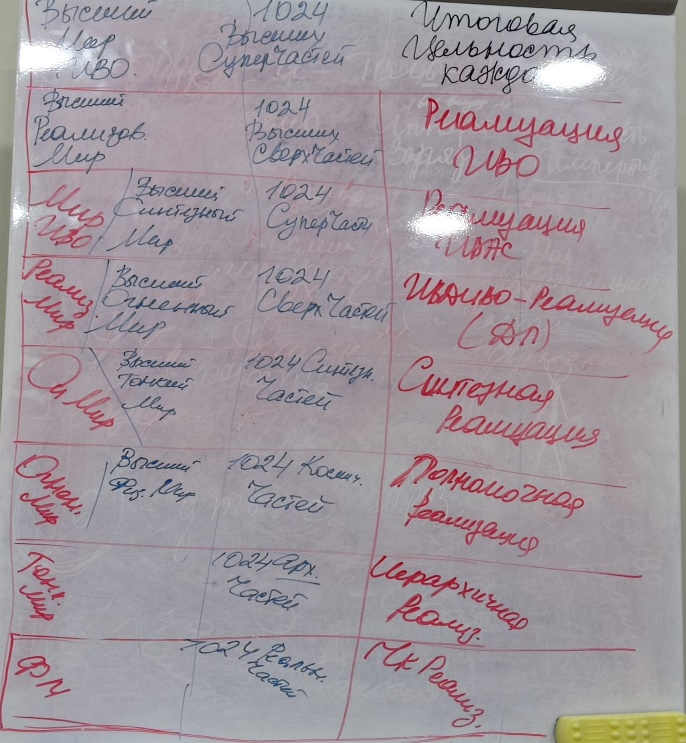 Высший
Мир
ИВО.
1024
Высших
СуперЧастей
Итоговая
Цельность
каждо
Высший
Реализов.
Мир
1024
Высших
СверхЧастей
Реализация
ИВО
Мир
ИВО
Высший
Синтезный
Мир
1024
СуперЧаст
Реализация
ИВАС
Реализ
Мир
Высший
Огненный
Мир
1024
СверхЧастей
ИВДИВО-Реализация
(ДП)
Си Мир
Высший
Тонкий
Мир
1024 Синтезн.
Частей
Синтезная
Реализация
Огнен.
Мир
Высший
Физ. Мир
1024 Космич.
Частей
Полномочная
Реализация
Тонк.
Мир
1024 Арх.
Частей
Иерархичная
Реализ.
ФМ
1024 Реальн.
Частей
Мк Реализ.